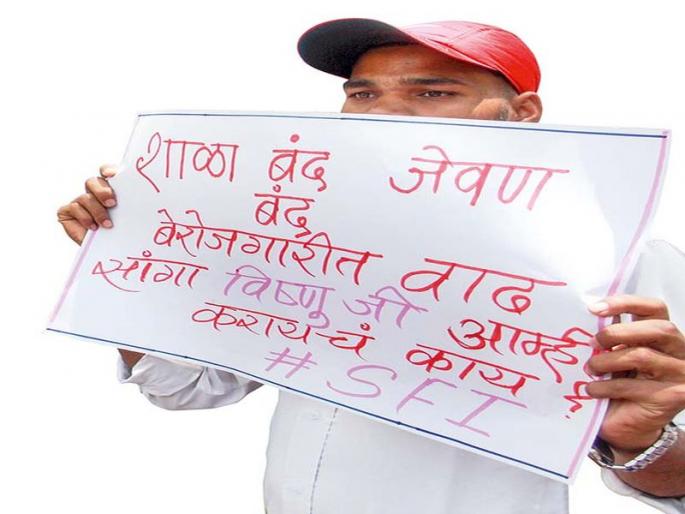 शाळा बंद जेवण
बंद
बेरोजगारीत वाढ
सांगा विष्णु जी आम्ही
करायचं काय ?
#SFI